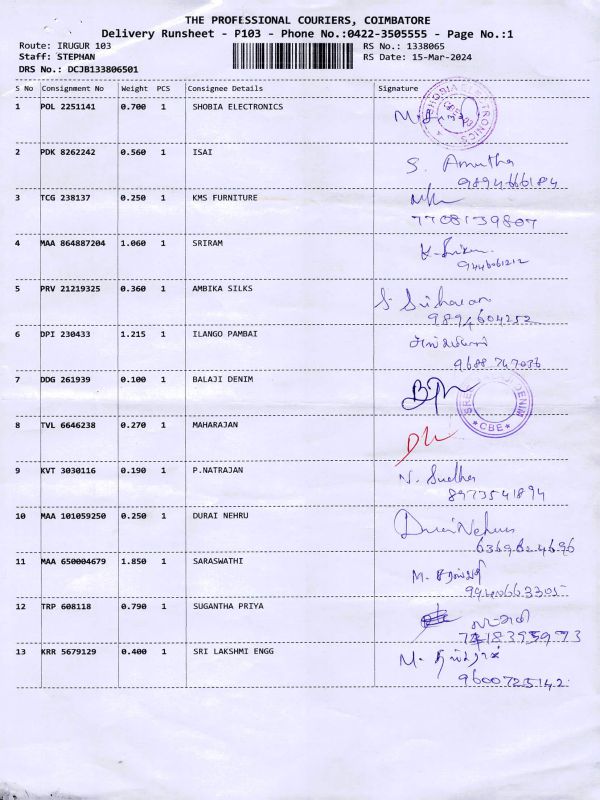 THE PROFESSIONAL COURIERS, COIMBATORE
Delivery Runsheet - P103 - Phone No.:0422-3505555 - Page No.:1
Route: IRUGUR 103 RS No.: 1338065
Staff: STEPHAN RS Date: 15-Mar-2024
DRS No.: DCJB133806501
S No Consignment No Weight PCS Consignee Details Signature
1 POL 2251141 0.700 1 SHOBIA ELECTRONICS
2 PDK 8262242 0.560 1 ISAI S. Amutha
9894666184
3 TCG 238137 0.250 1 KMS FURNITURE
7708139807
4 MAA 864887204 1.060 1 SRIRAM
9446061212
5 PRV 21219325 0.360 1 AMBIKA SILKS S Sridharan
9894604252
6 DPI 230433 1.215 1 ILANGO PAMBAI
9688 747036
7 DDG 261939 0.100 1 BALAJI DENIM
DENIM
*CBE*
8 TVL 6646238 0.270 1 MAHARAJAN
9 KVT 3030116 0.190 1 P.NATRAJAN N. Sudha
8973541894
10 MAA 101059250 0.250 1 DURAI NEHRU Durai Nehru
6369824696
11 MAA 650004679 1.850 1 SARASWATHI M.
9940663305
12 TRP 608118 0.790 1 SUGANTHA PRIYA
13 KRR 5679129 0.400 1 SRI LAKSHMI ENGG M.
9600725142